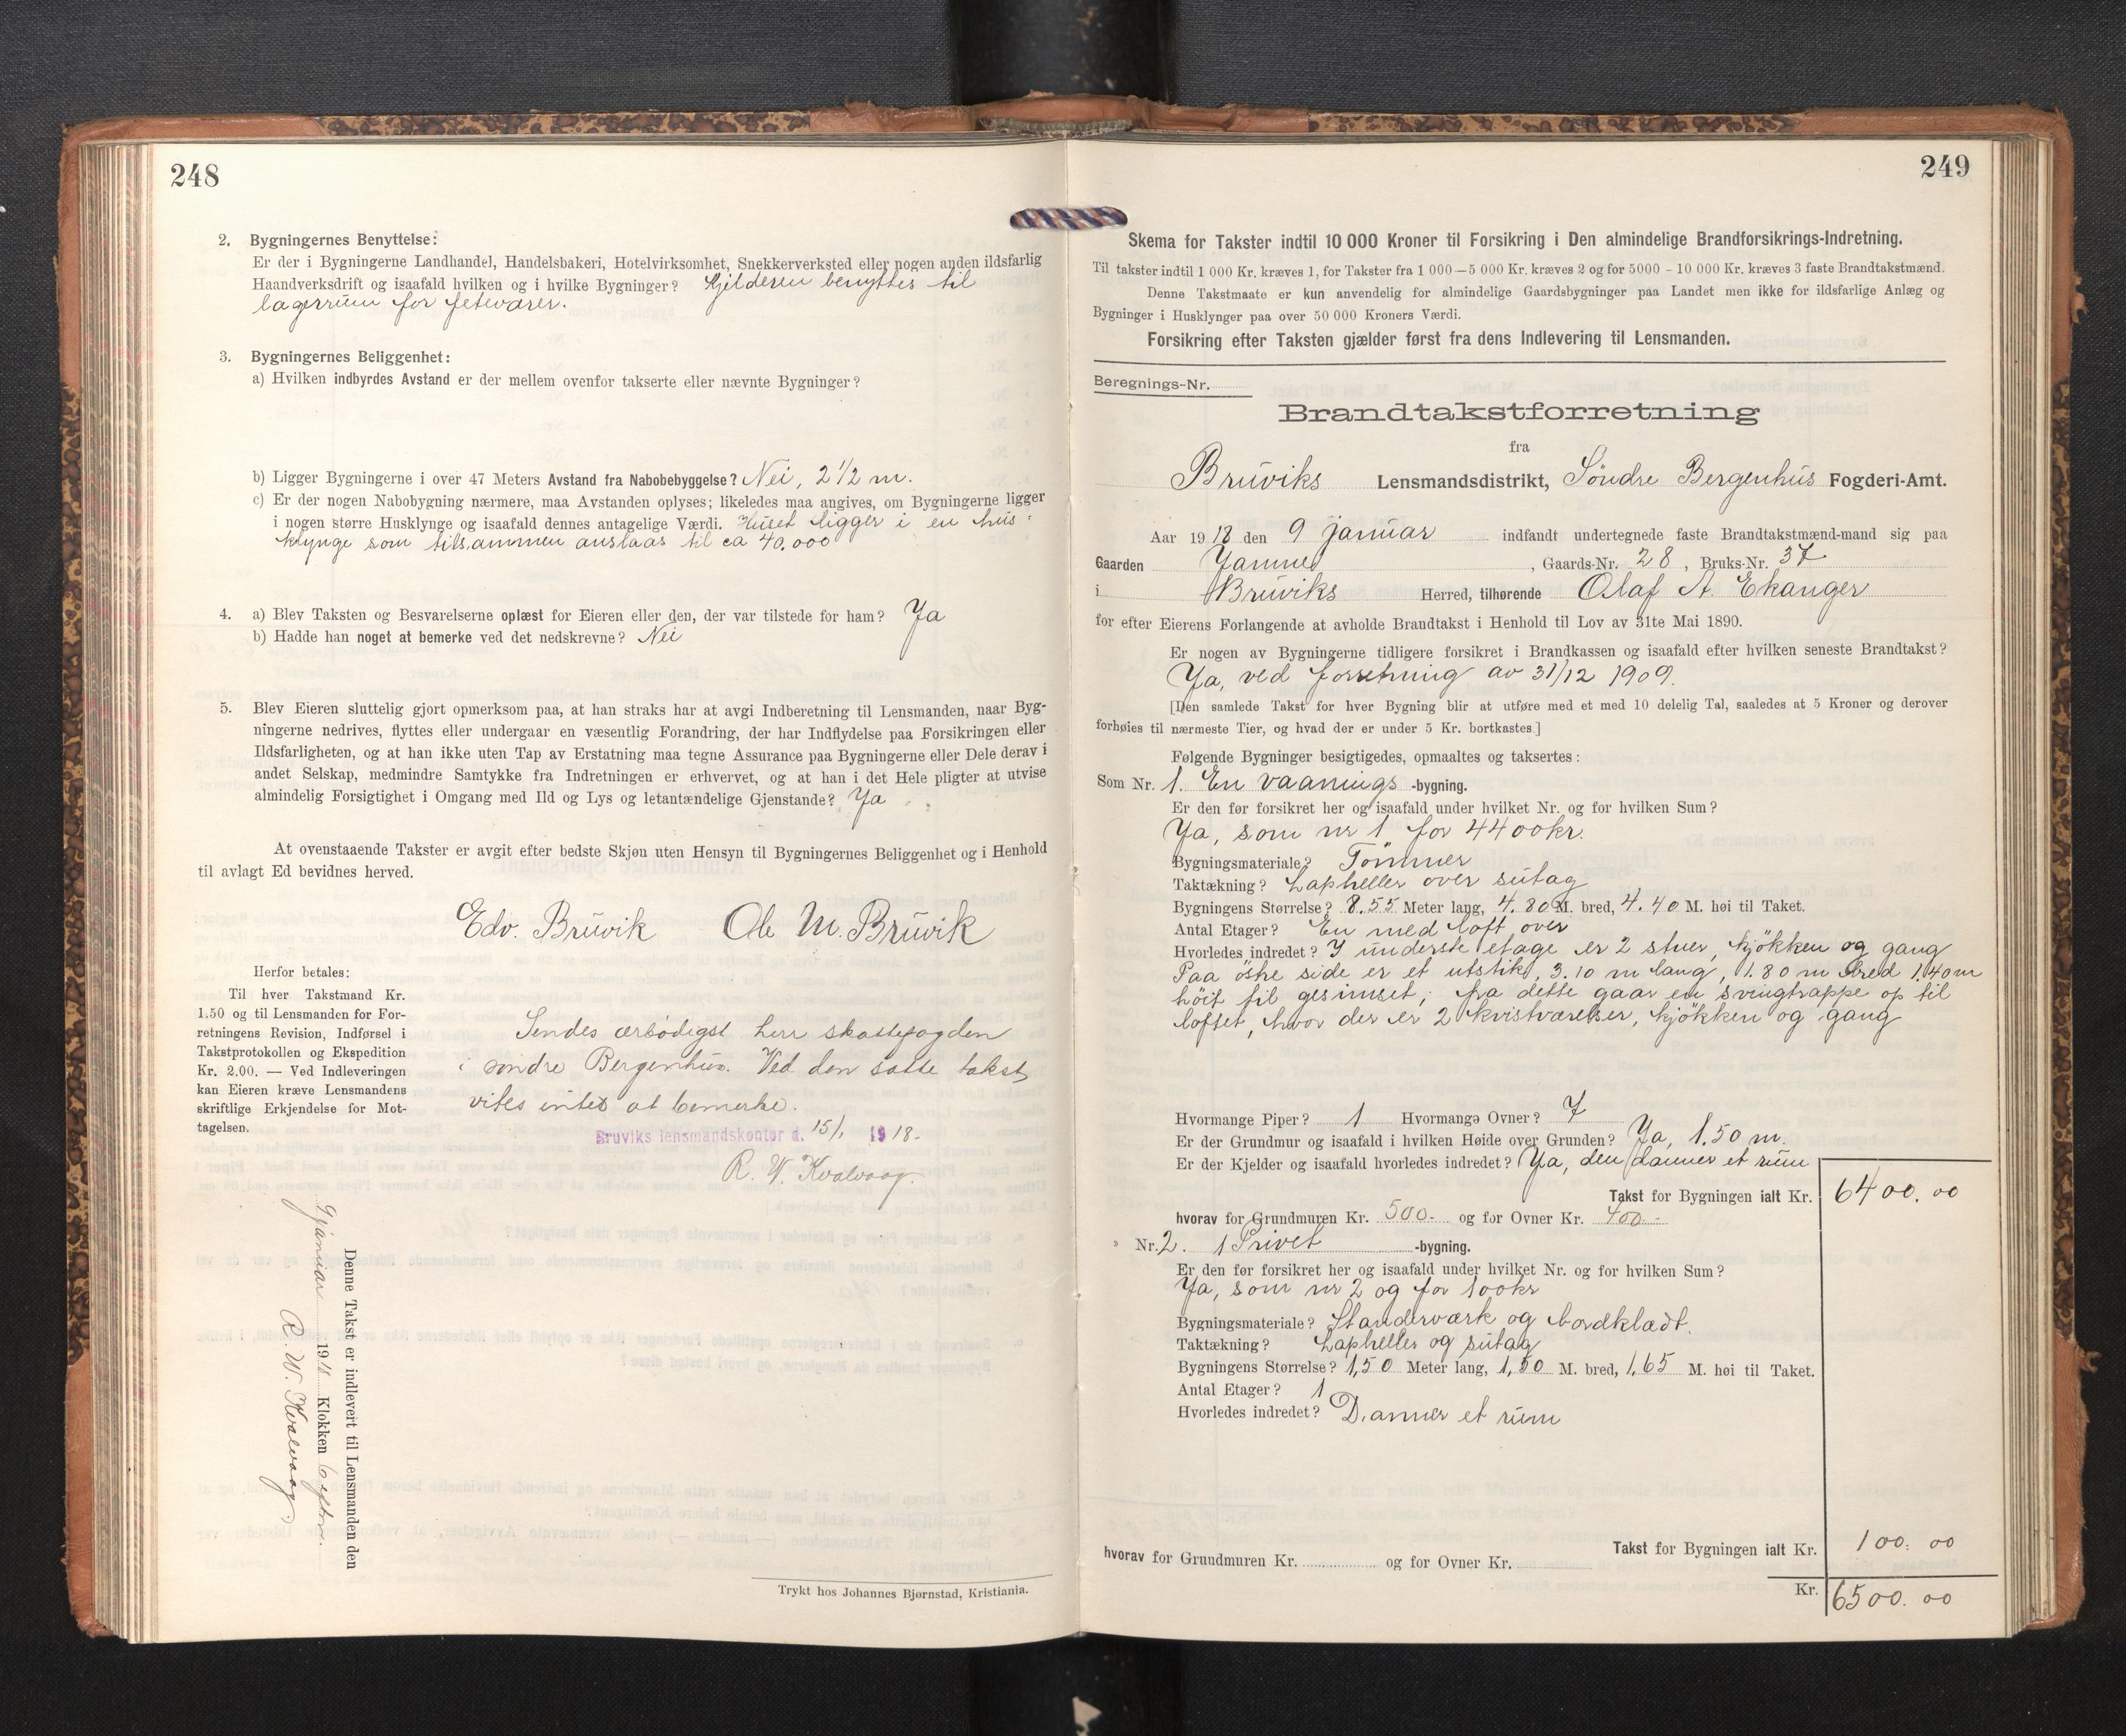 248
2. Bygningernes Benyttelse:
Er der i Bygningerne Landhandel, Handelsbakeri, Hotelvirksomhet, Snekkerverksted eller nogen anden ildsfarlig
Haandverksdrift og isaafald hvilken og i hvilke Bygninger? Kjelderen benyttes til
lagerrum for fetevarer.
3. Bygningernes Beliggenhet:
a) Hvilken indbyrdes Avstand er der mellem ovenfor takserte eller nævnte Bygninger?
b) Ligger Bygningerne i over 47 Meters Avstand fra Nabobebyggelse? Nei, 2 1/2 m.
c) Er der nogen Nabobygning nærmere, maa Avstanden oplyses; likeledes maa angives, om Bygningerne ligger
i nogen større Husklynge og isaafald dennes antagelige Værdi. Huset ligger i en hus-
klynge som tilsammen anslaas til ca 40.000
4. a) Blev Taksten og Besvarelserne oplæst for Eieren eller den, der var tilstede for ham? Ja
b) Hadde han noget at bemerke ved det nedskrevne? Nei
5. Blev Eieren sluttelig gjort opmerksom paa, at han straks har at avgi Indberetning til Lensmanden, naar Byg-
ningerne nedrives, flyttes eller undergaar en væsentlig Forandring, der har Indflydelse paa Forsikringen eller
Ildsfarligheten, og at han ikke uten Tap av Erstatning maa tegne Assurance paa Bygningerne eller Dele derav i
andet Selskap, medmindre Samtykke fra Indretningen er erhvervet, og at han i det Hele pligter at utvise
almindelig Forsigtighet i Omgang med Ild og Lys og letantændelige Gjenstande? Ja
At ovenstaaende Takster er avgit efter bedste Skjøn uten Hensyn til Bygningernes Beliggenhet og i Henhold
til avlagt Ed bevidnes herved.
Edv. Bruvik Ole M. Bruvik
Herfor betales:
Til hver Takstmand Kr.
1.50 og til Lensmanden for For-
retningens Revision, Indførsel i
Takstprotokollen og Ekspedition
Kr. 2.00. — Ved Indleveringen
kan Eieren kræve Lensmandens
skriftlige Erkjendelse for Mot-
tagelsen.
Sendes ærbødigst herr skattefogden
i søndre Bergenhus. Ved den satte takst
vites intet at bemerke.
Bruviks lensmandskontor d. 15/1 1918.
R. W. Kvalvaag.
Denne Takst er indlevert til Lensmanden den
9 januar 1918 Klokken 6 efterm.
R. W. Kvalvaag
Trykt hos Johannes Bjørnstad, Kristiania.
249
Skema for Takster indtil 10 000 Kroner til Forsikring i Den almindelige Brandforsikrings-Indretning.
Til takster indtil 1 000 Kr. kræves 1, for Takster fra 1 000—5 000 Kr. kræves 2 og for 5000 - 10 000 Kr. kræves 3 faste Brandtakstmænd.
Denne Takstmaate er kun anvendelig for almindelige Gaardsbygninger paa Landet men ikke for ildsfarlige Anlæg og
Bygninger i Husklynger paa over 50 000 Kroners Værdi.
Forsikring efter Taksten gjælder først fra dens Indlevering til Lensmanden.
Beregnings-Nr.
Brandtakstforretning
fra
Bruviks Lensmandsdistrikt, Søndre Bergenhus Fogderi-Amt.
Aar 1918 den 9 januar indfandt undertegnede faste Brandtakstmænd-mand sig paa
Gaarden Yanne, Gaards-Nr. 28, Bruks-Nr. 37
i Bruviks Herred, tilhørende Olaf A. Ekanger
for efter Eierens Forlangende at avholde Brandtakst i Henhold til Lov av 31te Mai 1890.
Er nogen av Bygningerne tidligere forsikret i Brandkassen og isaafald efter hvilken seneste Brandtakst?
Ja, ved forretning av 31/12 1909.
[Den samlede Takst for hver Bygning blir at utføre med et med 10 delelig Tal, saaledes at 5 Kroner og derover
forhøies til nærmeste Tier, og hvad der er under 5 Kr. bortkastes]
Følgende Bygninger besigtigedes, opmaaltes og taksertes:
Som Nr. 1. En vaanings -bygning.
Er den før forsikret her og isaafald under hvilket Nr. og for hvilken Sum?
Ja, som nr 1 for 4400kr.
Bygningsmateriale? Tömmer
Taktækning? Lapheller over sutag
Bygningens Størrelse? 8.55 Meter lang, 4.80 M. bred, 4.40 M. høi til Taket.
Antal Etager? En med loft over
Hvorledes indredet? I underste etage er 2 stuer, kjøkken og gang
Paa östre side er et utstik, 3.10 m lang, 1.80 m bred 1.40 m
höit til gesimset; fra dette gaar en svingtrappe op til
loftet, hvor der er 2 kvistværelser, kjøkken og gang
Hvormange Piper? 1 Hvormange Ovner? 7
Er der Grundmur og isaafald i hvilken Høide over Grunden? Ja, 1.50 m.
Er der Kjelder og isaafald hvorledes indredet? Ja, den danner et rum
Takst for Bygningen ialt Kr. 6400.00
hvorav for Grundmuren Kr. 500.- og for Ovner Kr. 400.-
" Nr. 2. 1 Privet -bygning.
Er den før forsikret her og isaafald under hvilket Nr. og for hvilken Sum?
Ja, som nr 2 og for 100kr
Bygningsmateriale? Standerværk og bordklædt.
Taktækning? Lapheller og sutag
Bygningens Størrelse? 1,50 Meter lang, 1,50 M. bred, 1,65 M. høi til Taket.
Antal Etager? 1
Hvorledes indredet? Danner et rum
Takst for Bygningen ialt Kr. 100.00
hvorav for Grundmuren Kr. og for Ovner Kr.
Kr. 6500.00